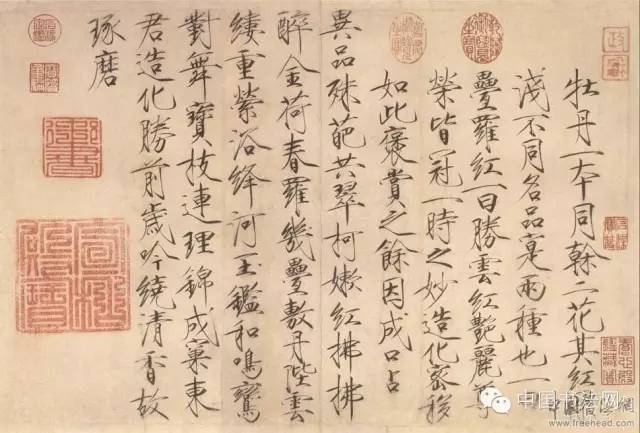 牡丹一本同幹二花其紅深
淺不同名品寔兩種也一
疊羅紅一曰勝雲紅艷麗尊
榮皆冠一時之妙造化密移
如此褒賞之餘因成口占
異品殊葩共翠柯嫩紅拂拂
醉金荷春羅幾疊敷丹陛雲
縷重縈浴絳河玉鑑和鳴鸞
對舞寶枝連理錦成窠東
君造化勝前歲吟繞清香故
琢磨
中国书法网
www.freehead.com